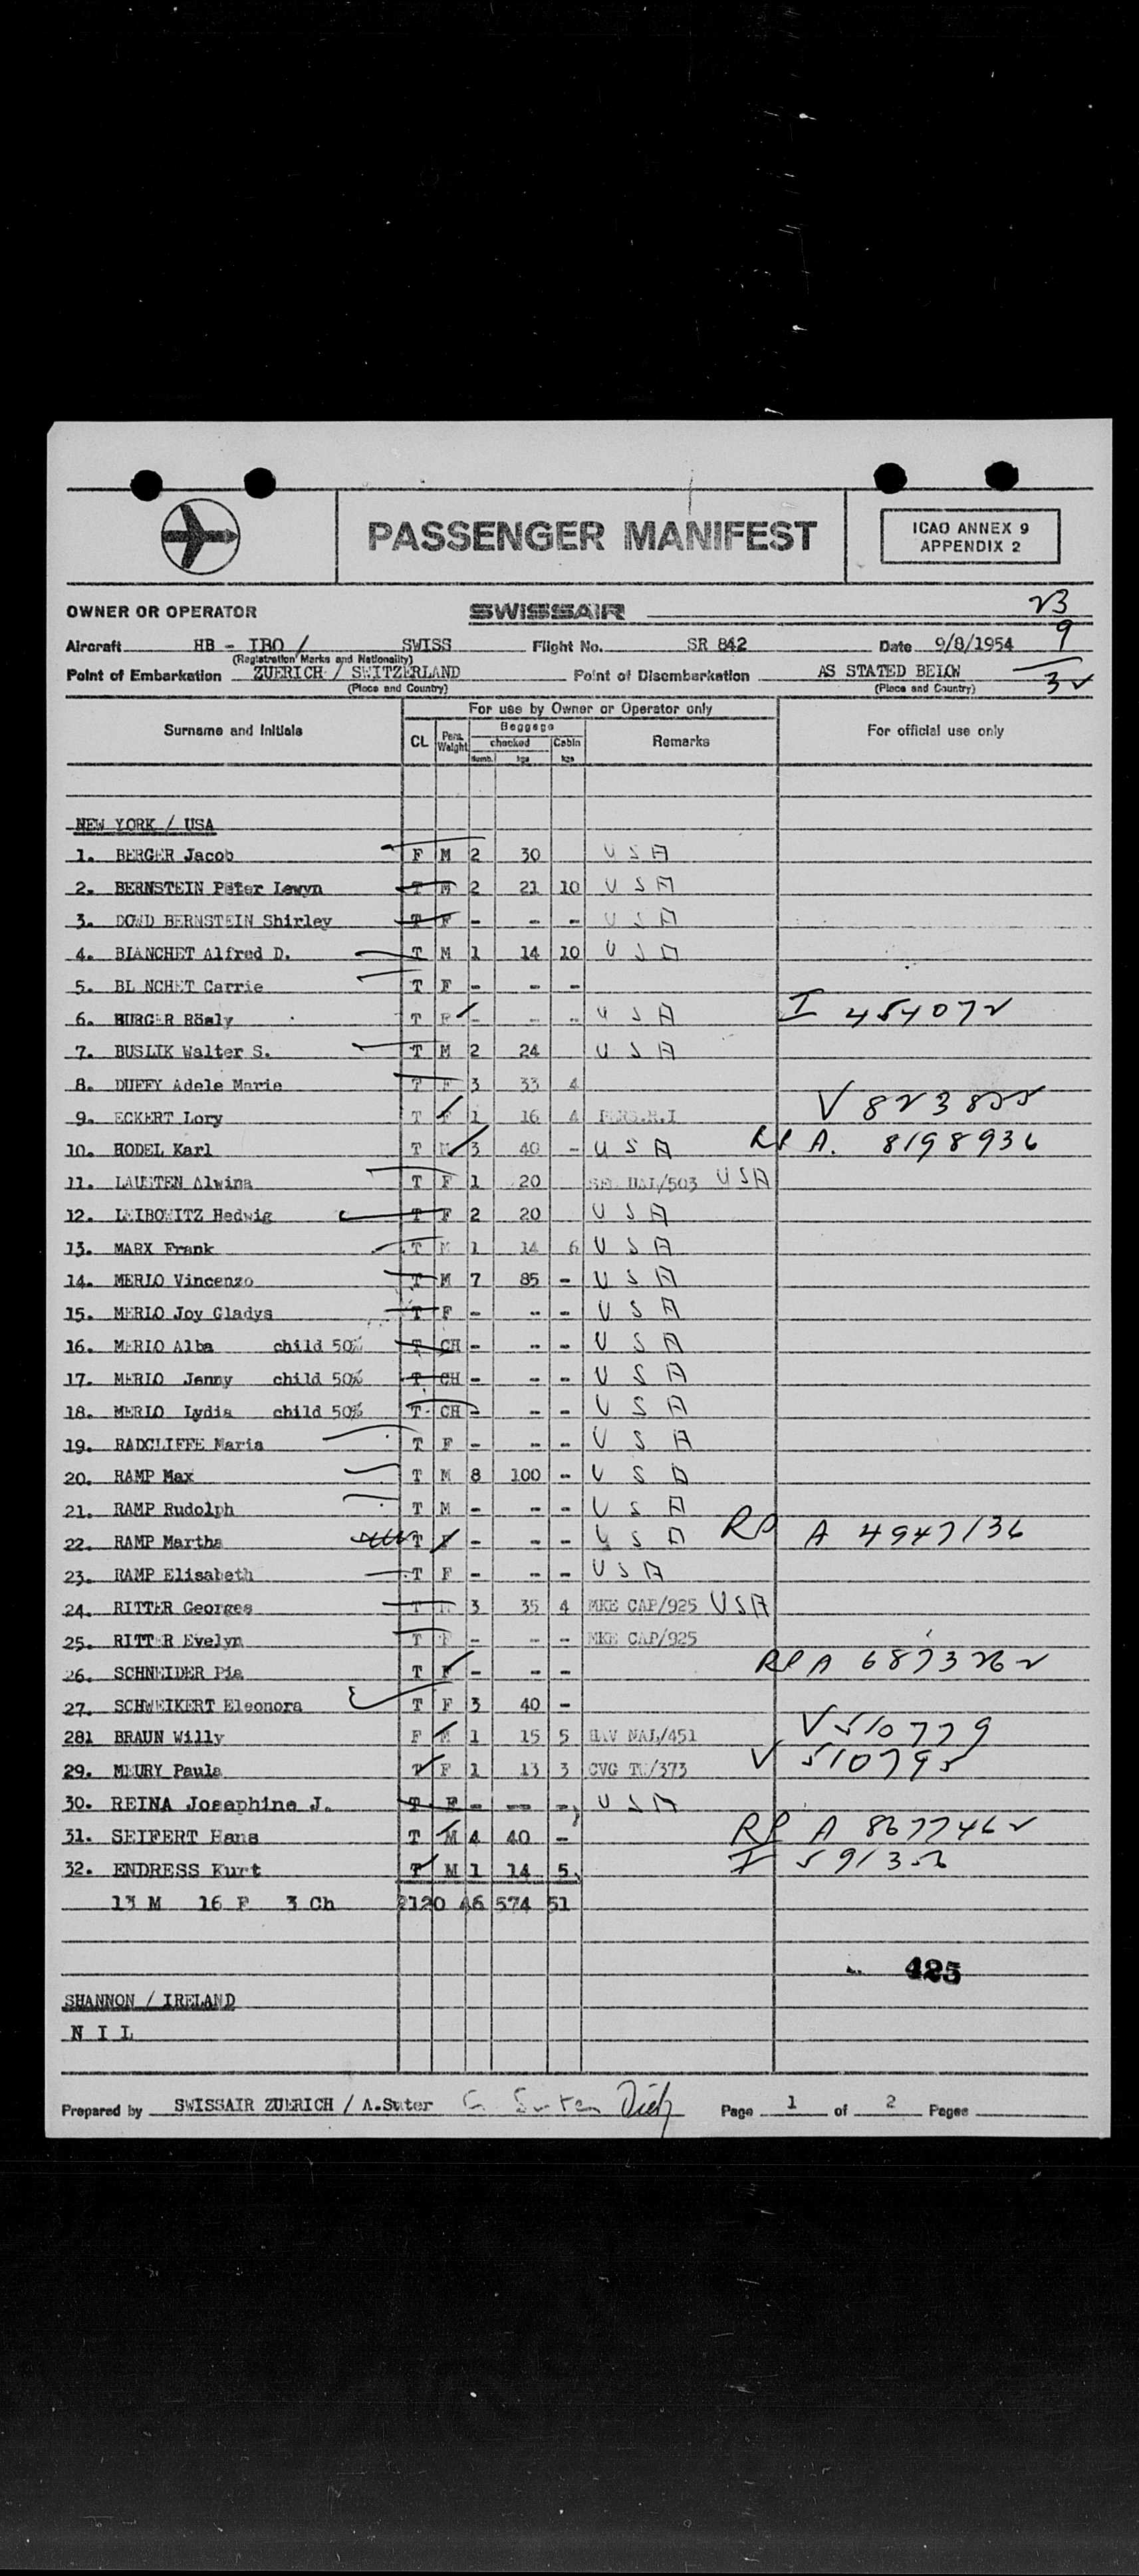 PASSENGER MANIFEST
ICAO ANNEX 9
APPENDIX 2
OWNER OR OPERATOR SWISSAIR 23
Aircraft HB - IBO / SWISS Flight No. SR 842 Date 9/8/1954 9
(Registration Marks and Nationality)
Point of Embarkation ZUERICH / SWITZERLAND Point of Disembarkation AS STATED BELOW 32
(Place and Country) (Place and Country)
For use by Owner or Operator only
Surname and Initials CL Pers. Weight Baggage checked Numb. kgs Cabin kgs Remarks For official use only
NEW YORK / USA
1. BERGER Jacob F M 2 30 USA
2. BERNSTEIN Peter Lewyn T M 2 21 10 USA
3. DOWD BERNSTEIN Shirley T F - - - USA
4. BIANCHET Alfred D. T M 1 14 10 USA
5. BL NCHET Carrie T F - - -
6. BURGER Rösly T F - - - USA I 454072
7. BUSLIK Walter S. T M 2 24 USA
8. DUFFY Adele Marie T F 3 33 4
9. ECKERT Lory T F 1 16 4 V 823822
10. HODEL Karl T M 3 40 - USA RP A. 8198936
11. LAUSTEN Alwina T F 1 20 HAL/503 USA
12. LEIBOWITZ Hedwig T F 2 20 USA
13. MARX Frank T M 1 14 6 USA
14. MERLO Vincenzo T M 7 85 - USA
15. MERLO Joy Gladys T F - - - USA
16. MERLO Alba child 50% T CH - - - USA
17. MERLO Jenny child 50% T CH - - - USA
18. MERLO Lydia child 50% T CH - - - USA
19. RADCLIFFE Maria T F - - - USA
20. RAMP Max T M 8 100 - USA
21. RAMP Rudolph T M - - - USA
22. RAMP Martha T F - - - USA RP A 4947136
23. RAMP Elisabeth T F - - - USA
24. RITTER Georges T M 3 35 4 MKE CAP/925 USA
25. RITT R Evelyn T F - - - MKE CAP/925
26. SCHNEIDER Pia T F - - - RP A 6873262
27. SCHWEIKERT Eleonora T F 3 40 -
281 BRAUN Willy F M 1 15 5 HAV NAL/451 V 510779
29. MEURY Paula T F 1 13 3 CVG TW/373 V 510795
30. REINA Josephine J. T F - -- - USA
31. SEIFERT Hans T M 4 40 - RP A 8677462
32. ENDRESS Kurt T M 1 14 5 I 591356
13 M 16 F 3 Ch 2120 46 574 51
425
SHANNON / IRELAND
N I L
Prepared by SWISSAIR ZUERICH / A.Suter Page 1 of 2 Pages